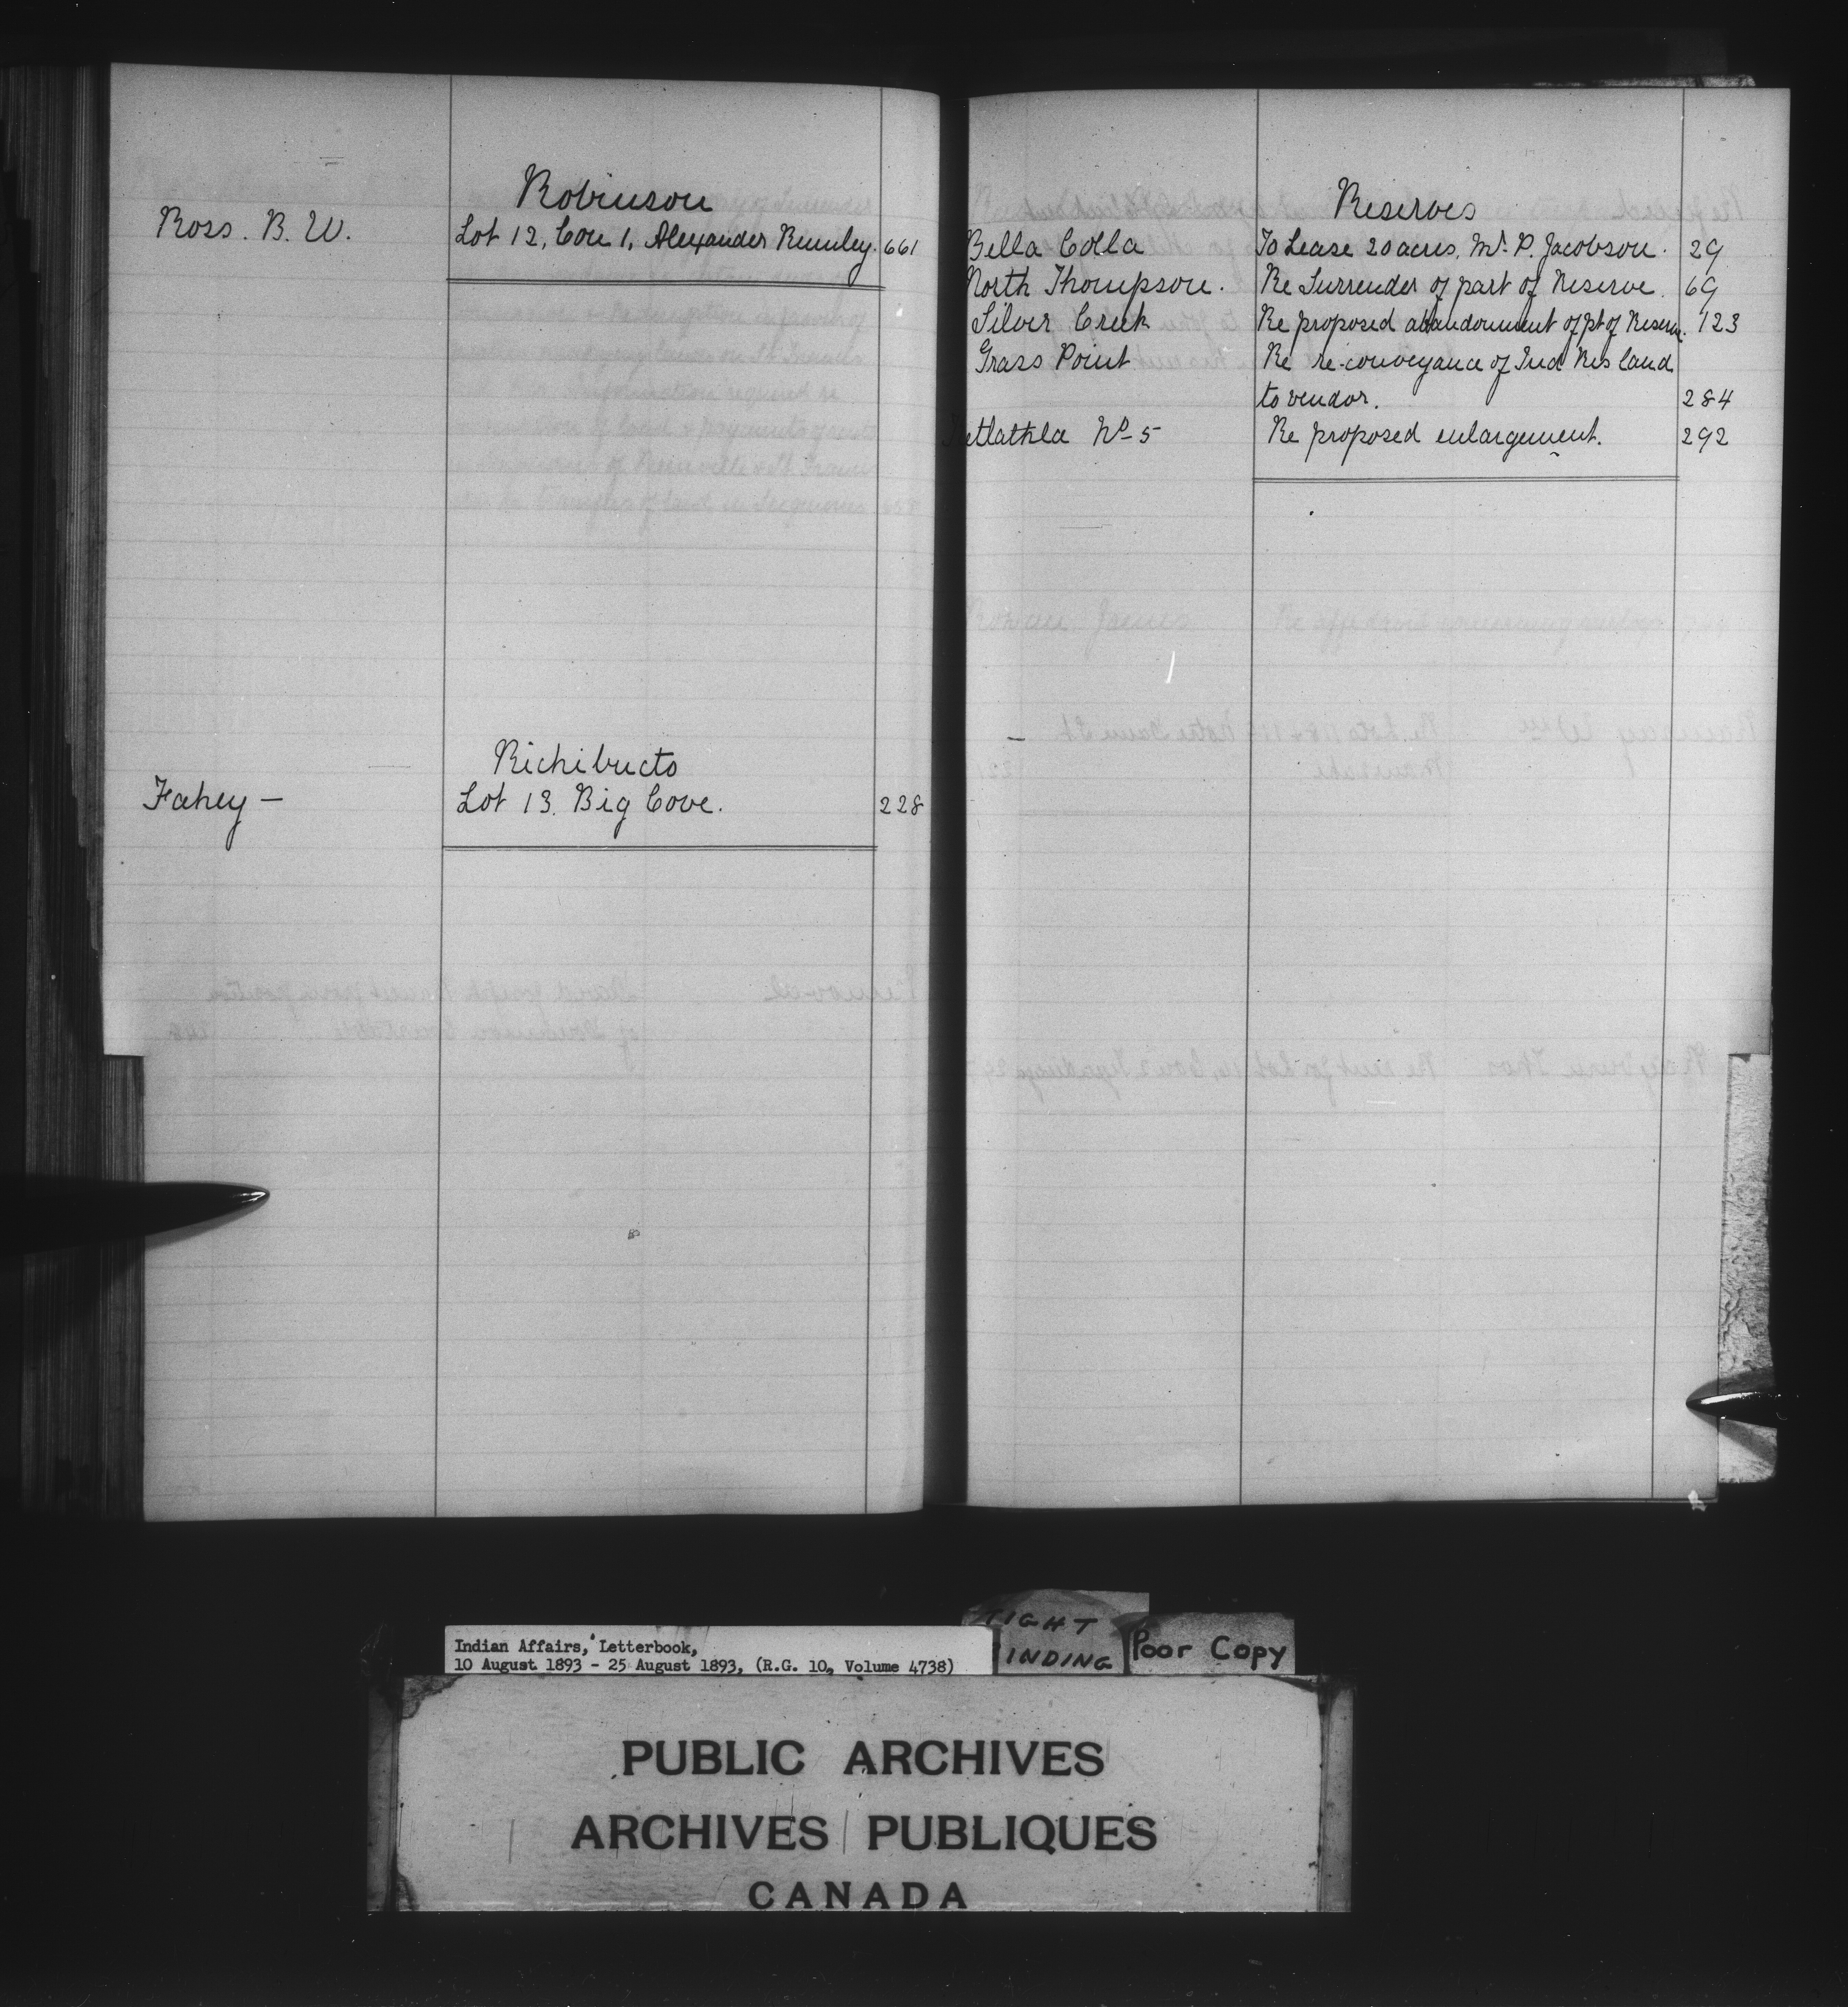 Robinson
Ross. B. W. Lot 12, Con 1, Alexander Rumley. 661
Richibucto
Fahey — Lot 13. Big Cove. 228
Reserves
Bella Colla To Lease 20 acres, Mr. P. Jacobson. 29
North Thompson. Re Surrender of part of Reserve. 69
Silver Creek Re proposed abandonment of pt of Reserve. 123
Grass Point Re re-conveyance of Ind Res land
to vendor. 284
No 5 Re proposed enlargement. 292
Indian Affairs, Letterbook,
10 August 1893 - 25 August 1893, (R.G. 10, Volume 4738)
TIGHT
BINDING
Poor Copy
PUBLIC ARCHIVES
ARCHIVES PUBLIQUES
CANADA